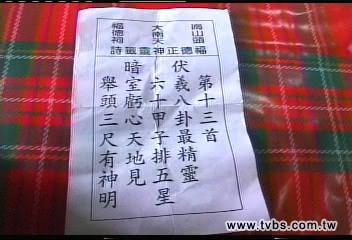 山頭
大南天
福德祠
福德正神靈籤詩
第十三首
伏羲八卦最精靈
六十甲子排五星
暗室虧心天地見
舉頭三尺有神明
www.tvbs.com.tw